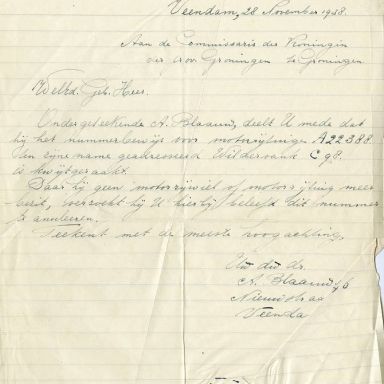 Veendam, 28 November 1938.
Aan de Commissaris der Koningin
der prov. Groningen te Groningen
WelEd. Geb. Heer.
Ondergeteekende A. Blaauw, deelt U mede dat
hij het nummerbewijs voor motorrijtuigen A22388
ten zijne name geadresseerd Wildervank C 98.
is kwijtgeraakt.
Daar hij geen motorrijwiel of motorrijtuig meer
bezit, verzoekt hij U hierbij beleefd dit nummer
te annuleeren.
Teekent met de meeste hoogachting,
Uw dw dr.
A. Blaauw
Nieuwstraa
Veenda